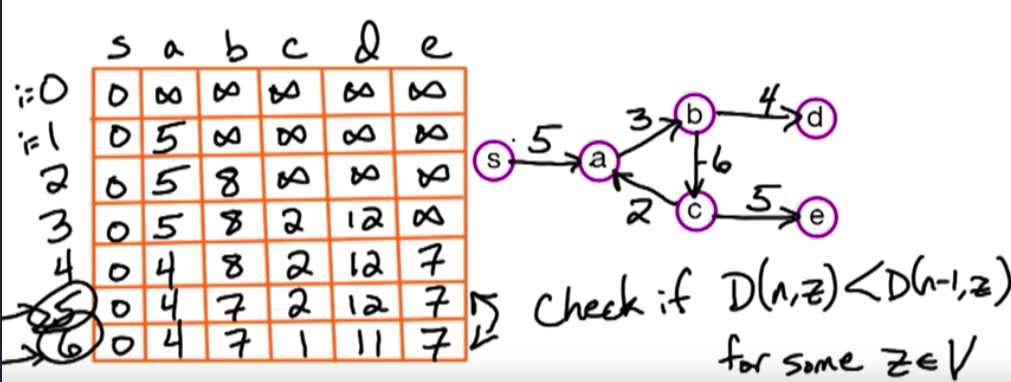 s a b c d e
i=0 0 ∞ ∞ ∞ ∞ ∞
i=1 0 5 ∞ ∞ ∞ ∞
2 0 5 8 ∞ ∞ ∞
3 0 5 8 2 12 ∞
4 0 4 8 2 12 7
5 0 4 7 2 12 7
6 0 4 7 1 11 7
s 5 a 3 b 4 d
-6
2 c 5 e
Check if D(n,z)<D(n-1,z)
for some z∈V